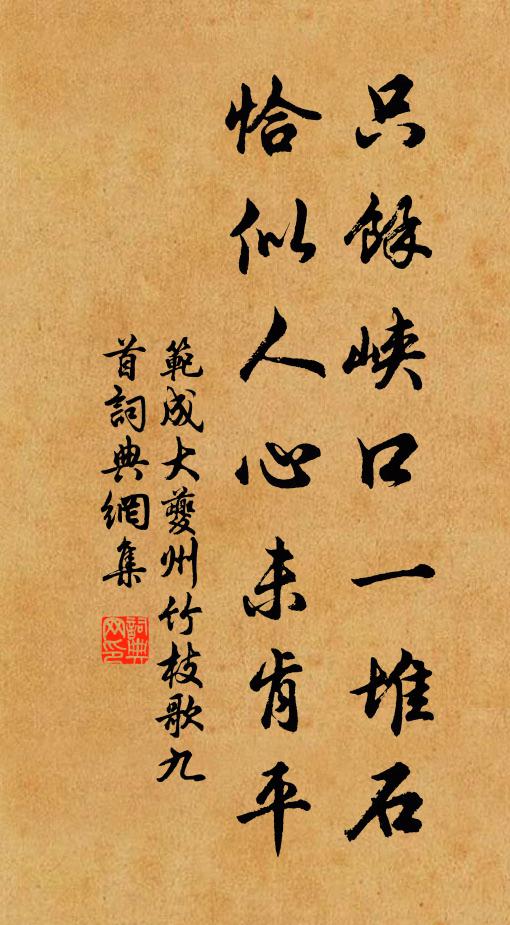 只餘峽口一堆石
恰似人心未肯平
範成大夔州竹枝歌九
首詞典網集
詞典
网印